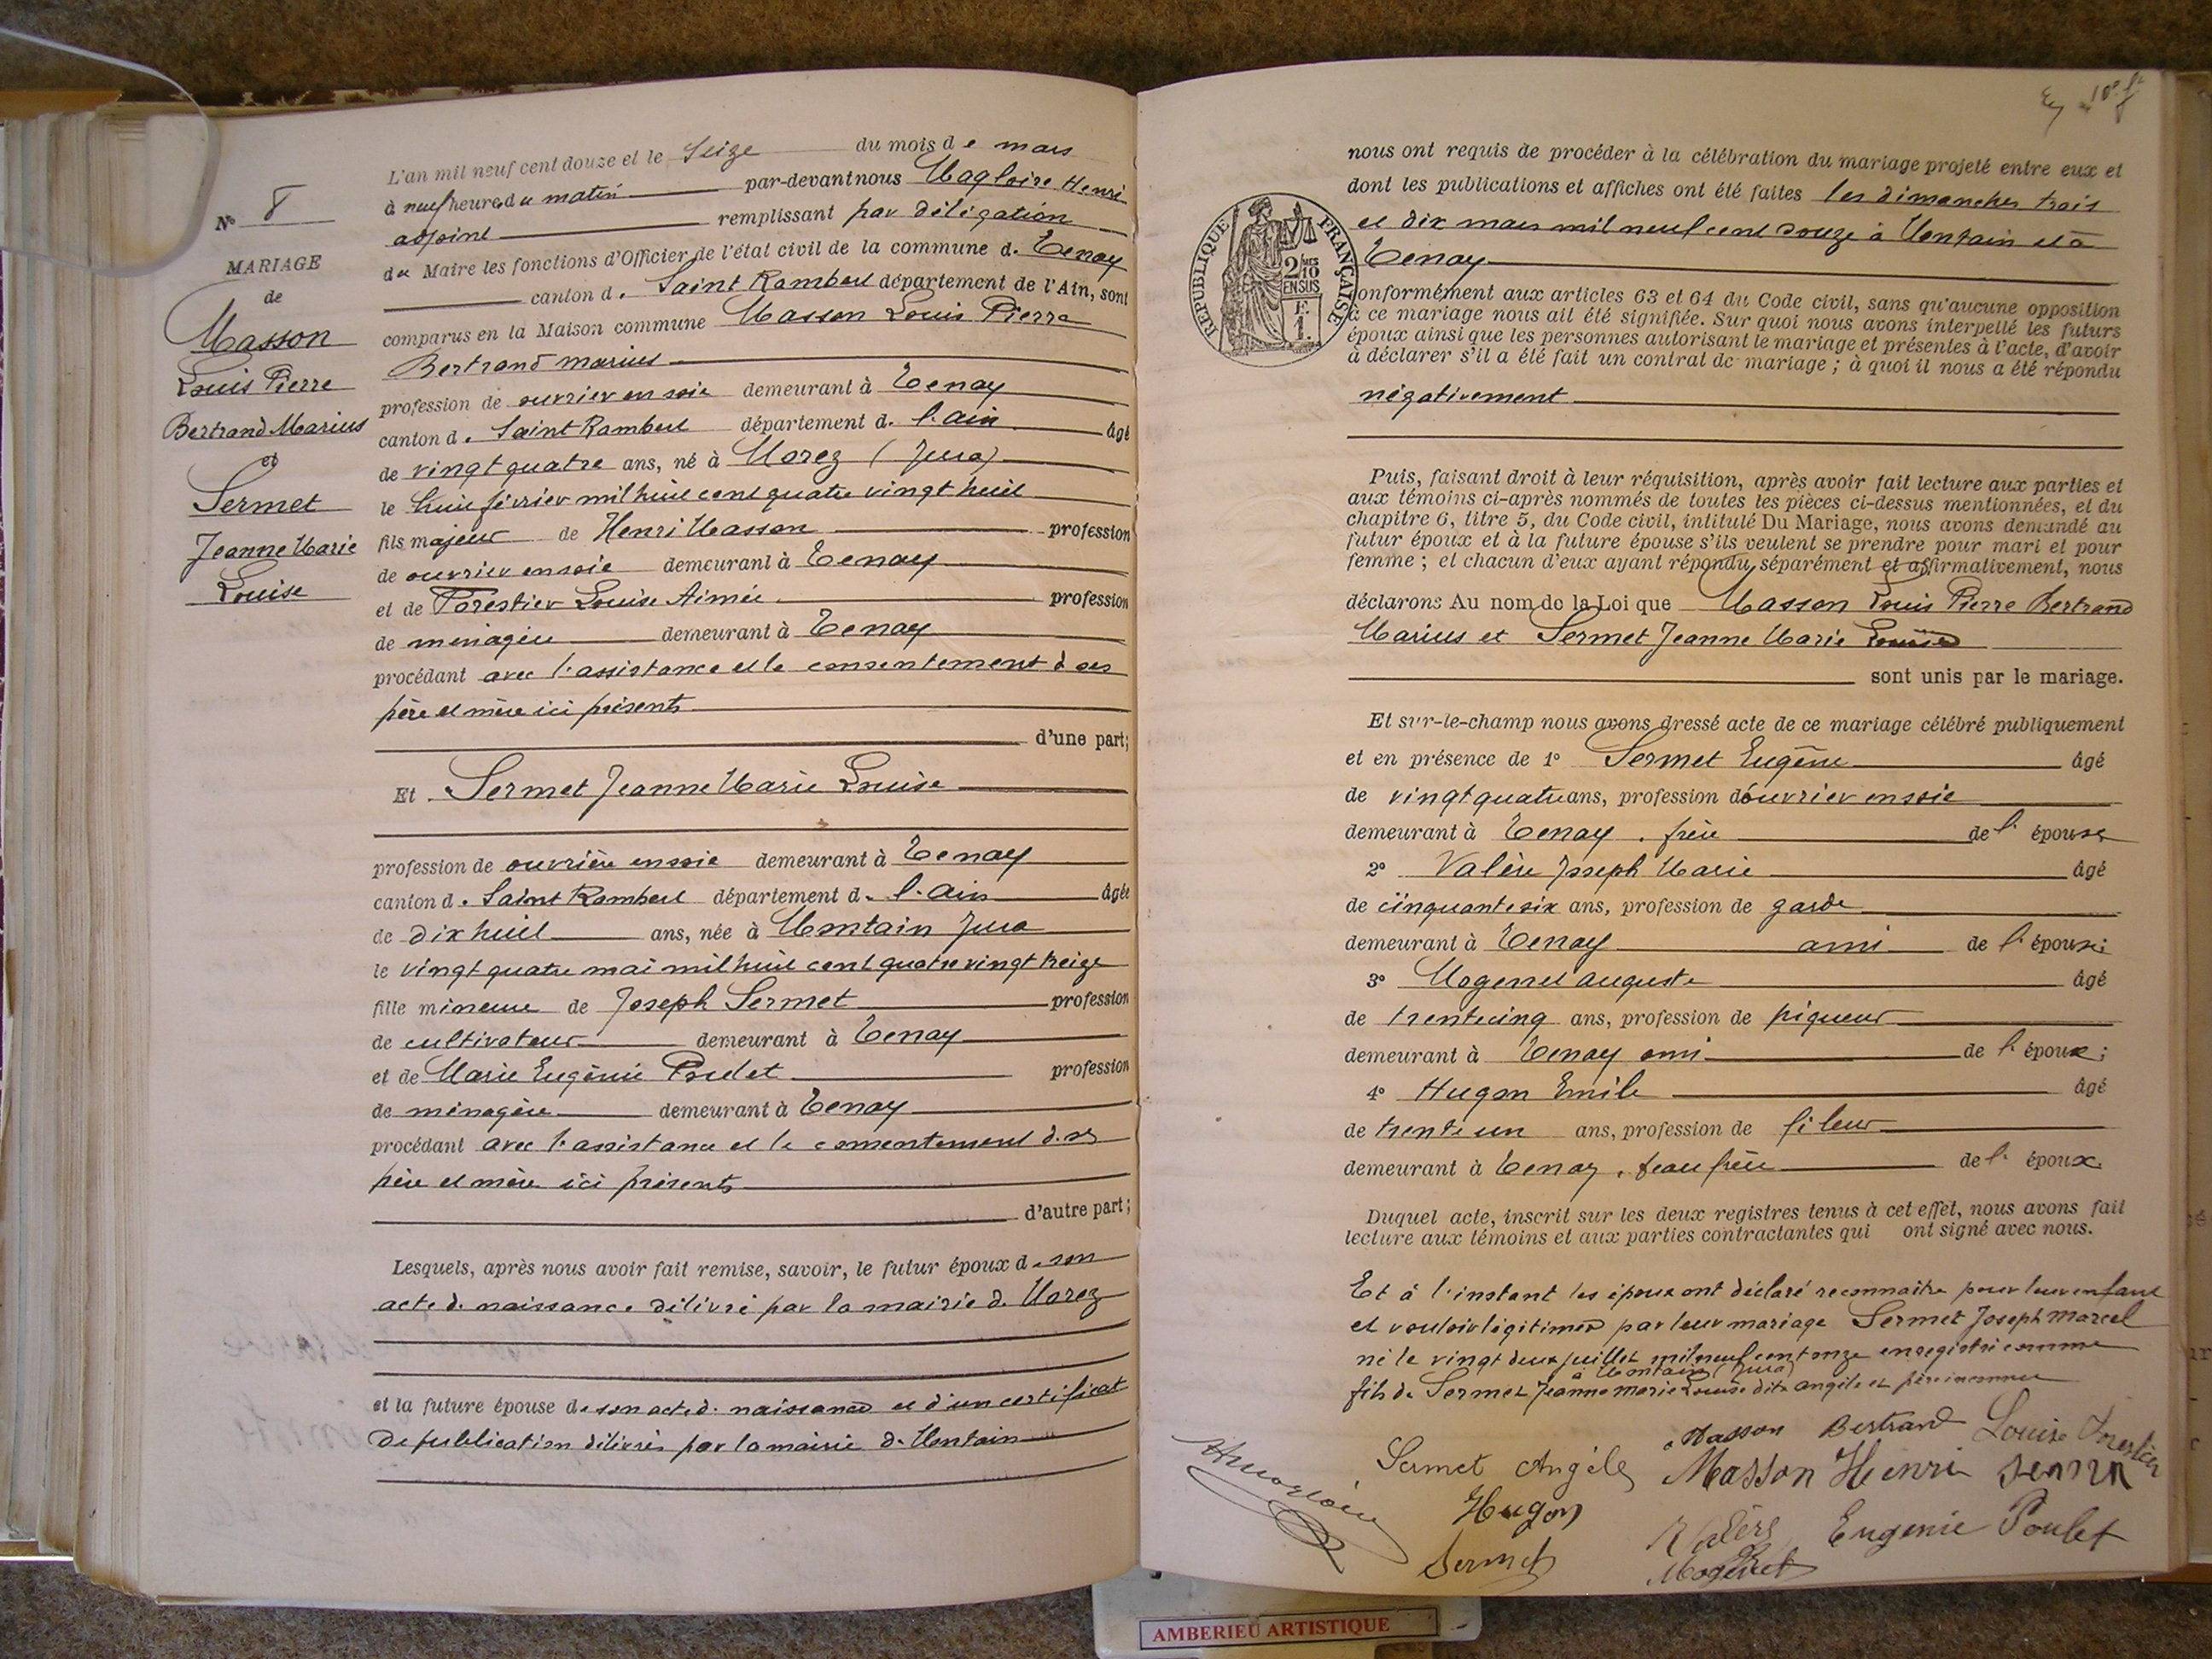 L'an mil neuf cent douze et le Seize du mois de mars
à neuf heures du matin par-devant nous Magloire Henri
adjoint remplissant par délégation
du Maire les fonctions d'Officier de l'état civil de la commune de Tenay
canton de Saint Rambert département de l'Ain, sont
comparus en la Maison commune Masson Louis Pierre
Bertrand Marius
profession de ouvrier en soie demeurant à Tenay
canton de Saint Rambert département de l'Ain âgé
de vingt quatre ans, né à Morez (Jura)
le huit février mil huit cent quatre vingt huit
fils majeur de Henri Masson profession
de ouvrier en soie demeurant à Tenay
et de Forestier Louise Aimée profession
de ménagère demeurant à Tenay
procédant avec l'assistance et le consentement de ses
père et mère ici présents
d'une part;
Et Sermet Jeanne Marie Louise
profession de ouvrière en soie demeurant à Tenay
canton de Saint Rambert département de l'Ain âgée
de dix huit ans, née à Montain Jura
le vingt quatre mai mil huit cent quatre vingt treize
fille mineure de Joseph Sermet profession
de cultivateur demeurant à Tenay
et de Marie Eugénie Poulet profession
de ménagère demeurant à Tenay
procédant avec l'assistance et le consentement de ses
père et mère ici présents
d'autre part;
Lesquels, après nous avoir fait remise, savoir, le futur époux de son
acte de naissance délivré par la mairie de Morez
et la future épouse de son acte de naissance et d'un certificat
de publication délivrés par la mairie de Montain
N° 8
MARIAGE
de
Masson
Louis Pierre
Bertrand Marius
et
Sermet
Jeanne Marie
Louise
nous ont requis de procéder à la célébration du mariage projeté entre eux et
dont les publications et affiches ont été faites les dimanches trois
et dix mars mil neuf cent douze à Montain et à
Tenay
conformément aux articles 63 et 64 du Code civil, sans qu'aucune opposition
à ce mariage nous ait été signifiée. Sur quoi nous avons interpellé les futurs
époux ainsi que les personnes autorisant le mariage et présentes à l'acte, d'avoir
à déclarer s'il a été fait un contrat de mariage ; à quoi il nous a été répondu
négativement
Puis, faisant droit à leur réquisition, après avoir fait lecture aux parties et
aux témoins ci-après nommés de toutes les pièces ci-dessus mentionnées, et du
chapitre 6, titre 5, du Code civil, intitulé Du Mariage, nous avons demandé au
futur époux et à la future épouse s'ils veulent se prendre pour mari et pour
femme ; et chacun d'eux ayant répondu séparément et affirmativement, nous
déclarons Au nom de la Loi que Masson Louis Pierre Bertrand
Marius et Sermet Jeanne Marie Louise
sont unis par le mariage.
Et sur-le-champ nous avons dressé acte de ce mariage célébré publiquement
et en présence de 1° Sermet Eugène âgé
de vingt quatre ans, profession d'ouvrier en soie
demeurant à Tenay, frère de l'épouse
2° Valère Joseph Marie âgé
de cinquante six ans, profession de garde
demeurant à Tenay ami de l'époux;
3° Mogenet Auguste âgé
de trente cinq ans, profession de piqueur
demeurant à Tenay ami de l'époux;
4° Hugon Emile âgé
de trente un ans, profession de fileur
demeurant à Tenay, beau frère de l'époux.
Duquel acte, inscrit sur les deux registres tenus à cet effet, nous avons fait
lecture aux témoins et aux parties contractantes qui ont signé avec nous.
Et à l'instant les époux ont déclaré reconnaître pour leur enfant
et vouloir légitimer par leur mariage Sermet Joseph Marcel
né le vingt deux juillet mil neuf cent onze enregistré comme
à Montain (Jura)
fils de Sermet Jeanne Marie Louise dite Angèle et père inconnu
Masson Bertrand Louise Forestier
Sermet Angèle Masson Henri
Hugon
Valère Eugenie Poulet
Sermet Mogenet
RÉPUBLIQUE FRANÇAISE
2/10
EN SUS
F.
1.
AMBERIEU ARTISTIQUE